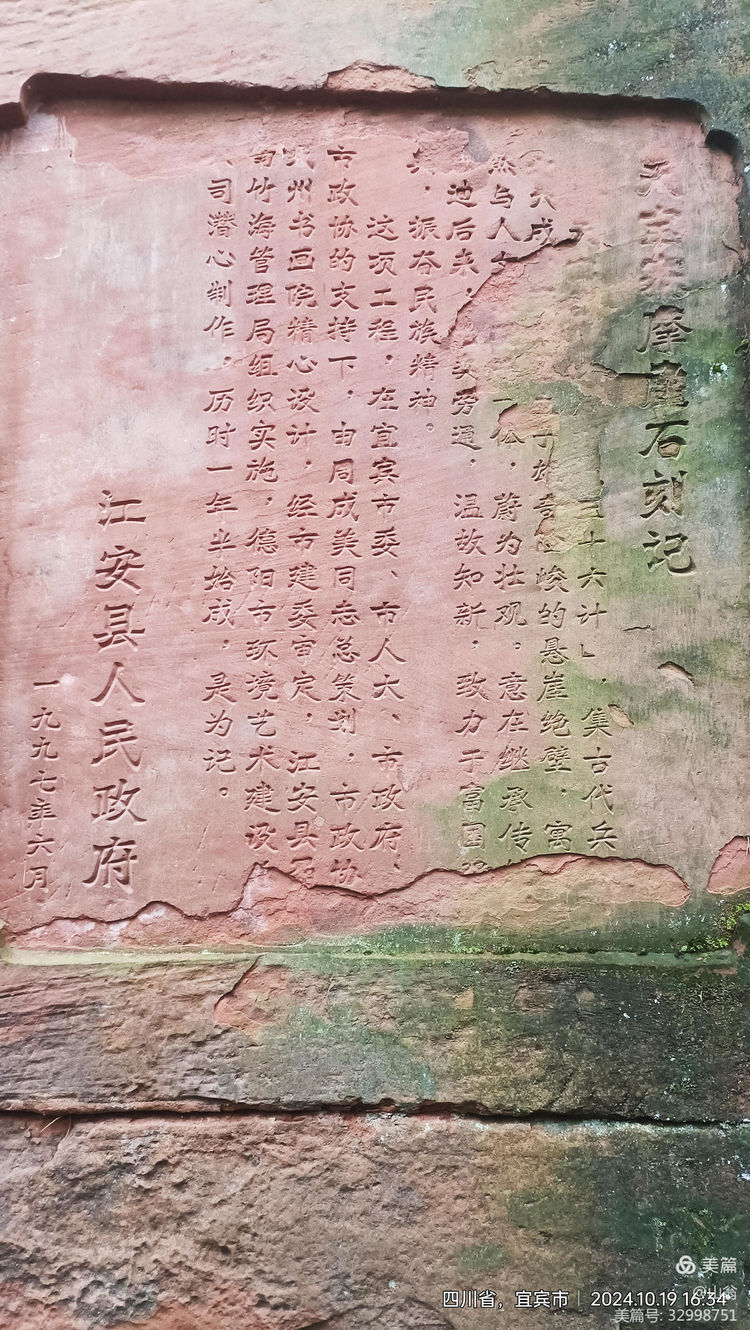 天宝寨摩崖石刻记
三十六计」，集古代兵
大成 于雄奇险峻的悬崖绝壁，寓
然与人 一体，蔚为壮观。意在继承传
迪后来， 旁通，温故知新，致力于富国
，振奋民族精神。
这项工程，在宜宾市委、市人大、市政府、
市政协的支持下，由周成美同志总策划，市政协
州书画院精心设计，经市建委审定，江安县
南竹海管理局组织实施，德阳市环境艺术建设
司潜心制作，历时一年半始成，是为记。
江安县人民政府
一九九七年六月
美篇
四川省，宜宾市 | 2024.10.19 16:34
美篇号: 32998751